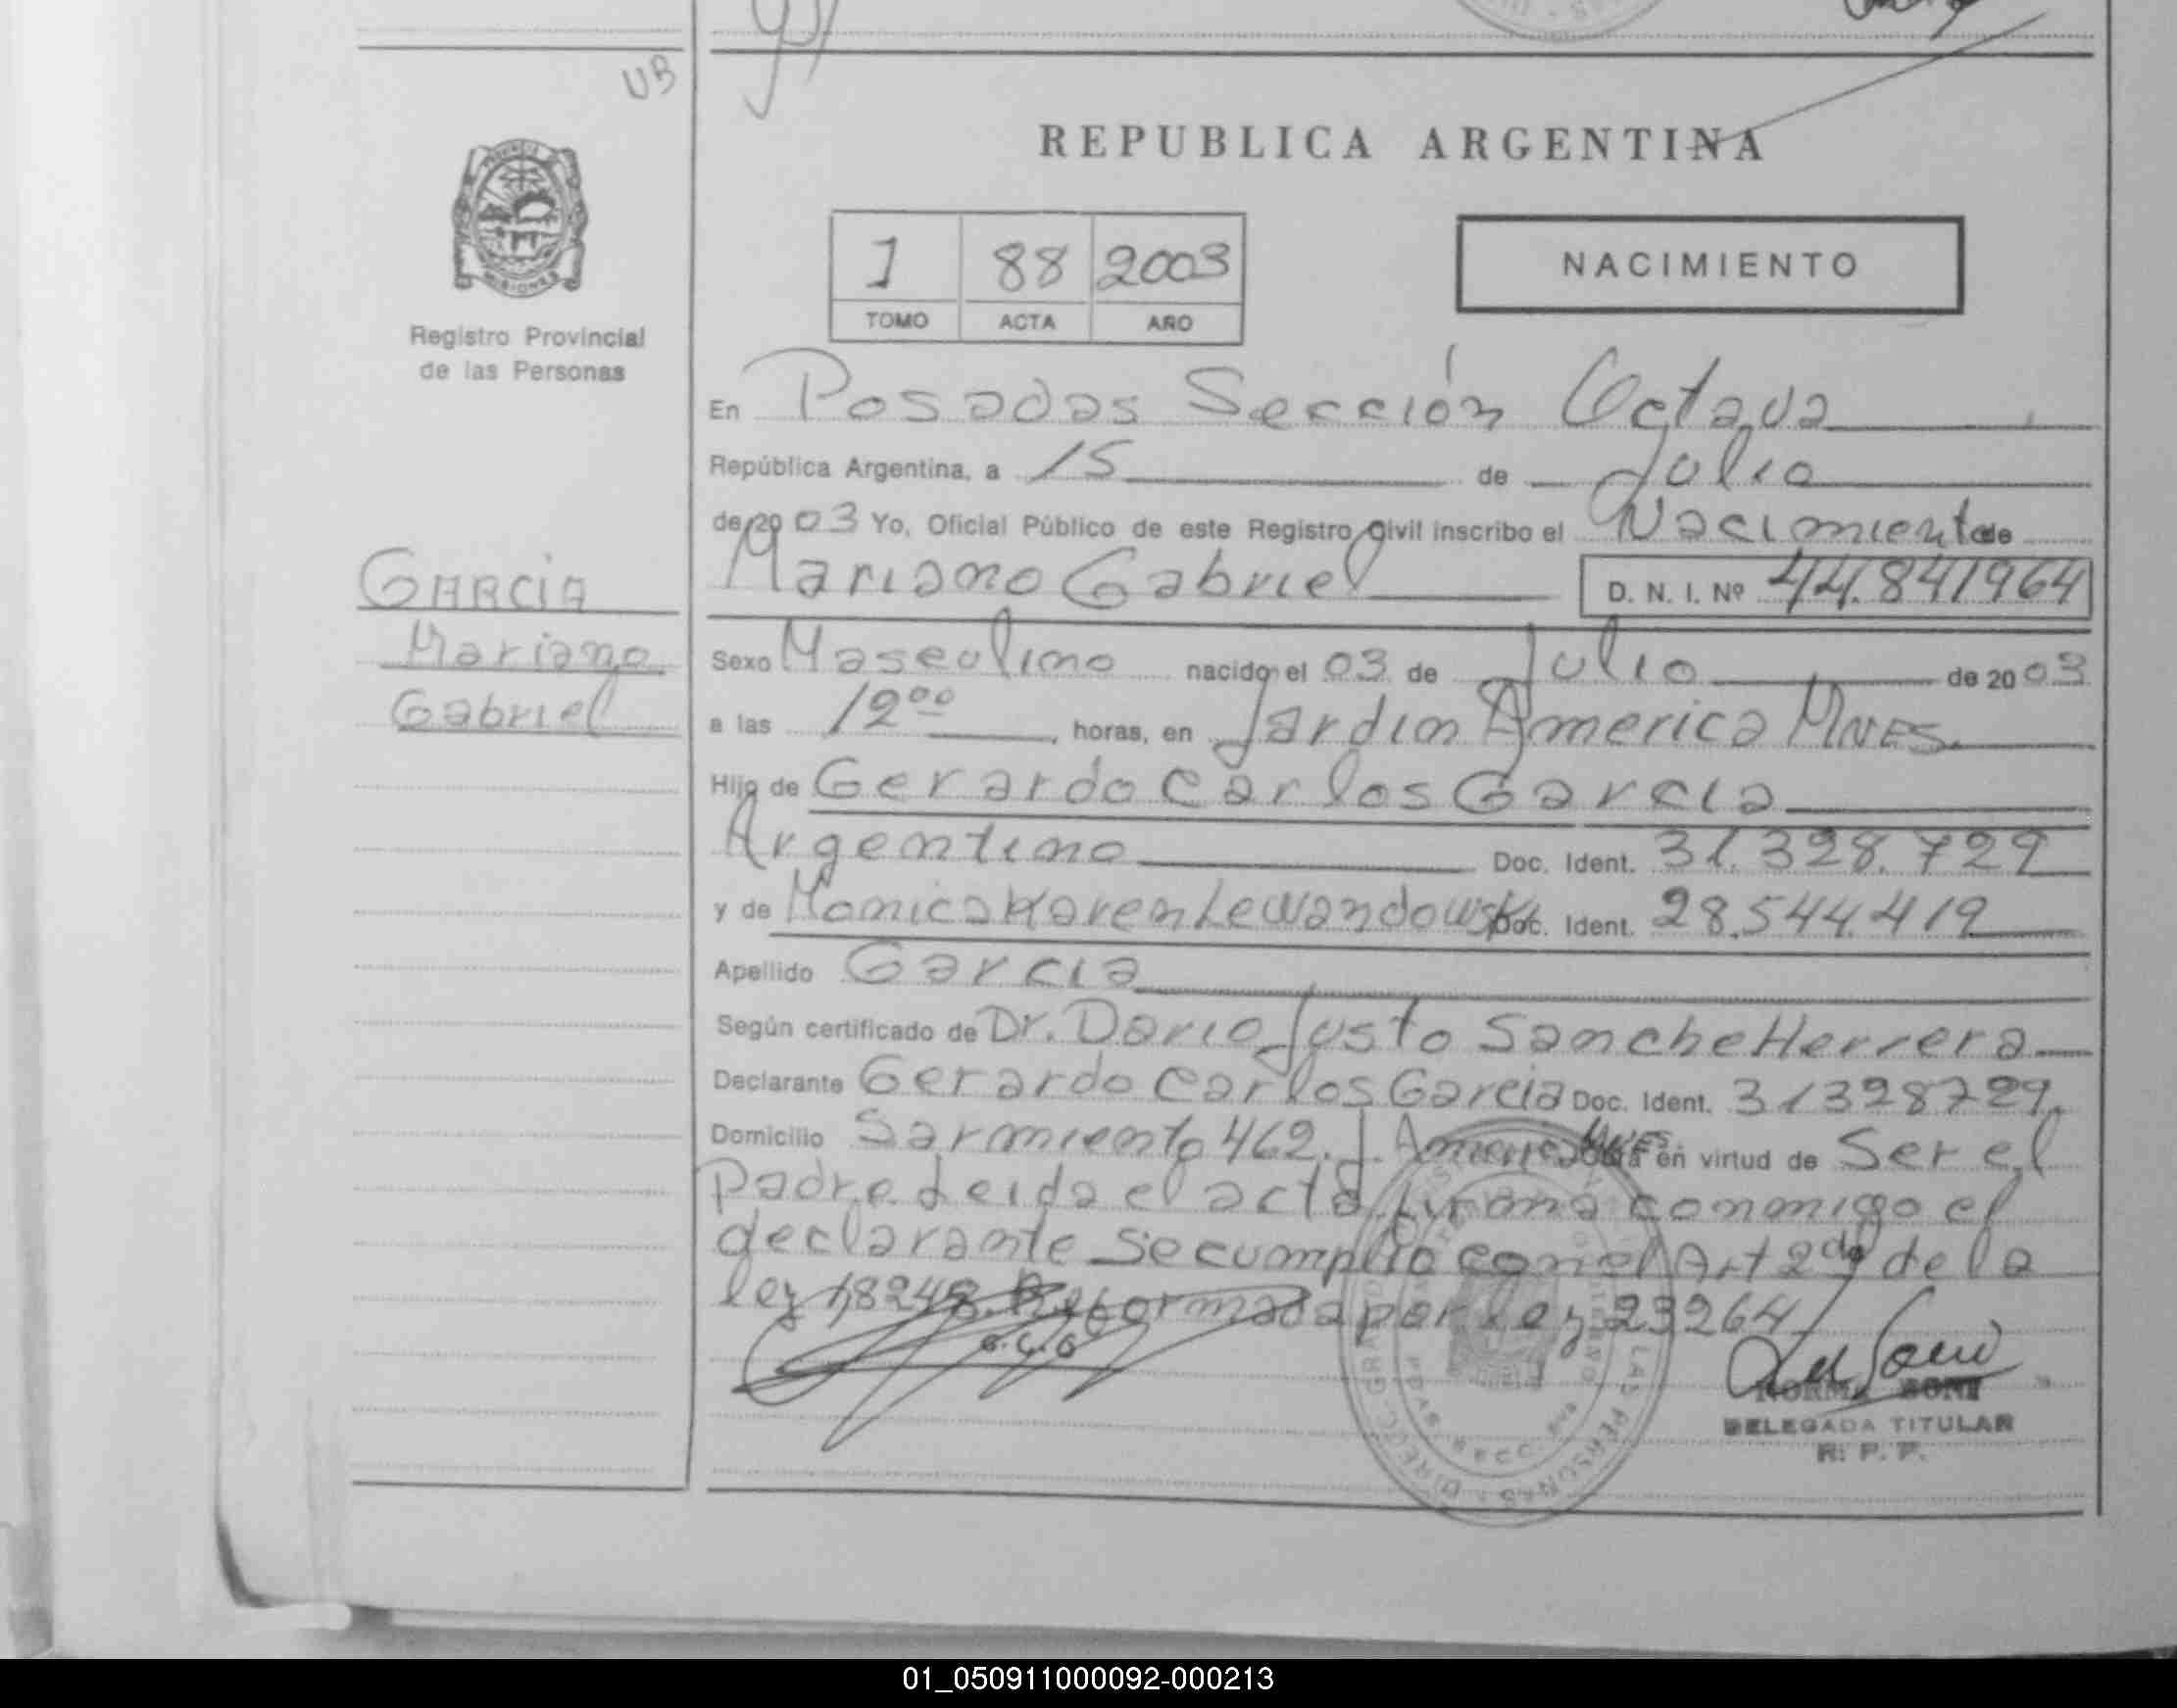 UB
REPUBLICA ARGENTINA
1 88 2003
TOMO ACTA AÑO
NACIMIENTO
MISIONES
Registro Provincial
de las Personas
En Posadas Sección Octava
República Argentina, a 15 de Julio
de 2003 Yo, Oficial Público de este Registro Civil inscribo el Nacimiento de
GARCIA
Mariano
Gabriel
Mariano Gabriel D. N. I. Nº 44.841964
Sexo Masculino nacido el 03 de Julio de 2003
a las 12 00 horas, en Jardin America MNES.
Hijo de Gerardo Carlos Garcia
Argentino Doc. Ident. 31.328.729
y de Monica Karen Lewandowski Doc. Ident. 28.544.419
Apellido Garcia
Según certificado de Dr. Dario Justo Sanche Herrera
Declarante Gerardo Carlos Garcia Doc. Ident. 31328729.
Domicilio Sarmiento 462. J. America MNES. en virtud de Ser el
padre Leida el acta firma conmigo el
declarante Se cumplio con el Art 2do de la
ley 18248. Reformada por Ley 23264
G.C.G
NORMA SONI
DELEGADA TITULAR
R. P. P.
01_050911000092-000213